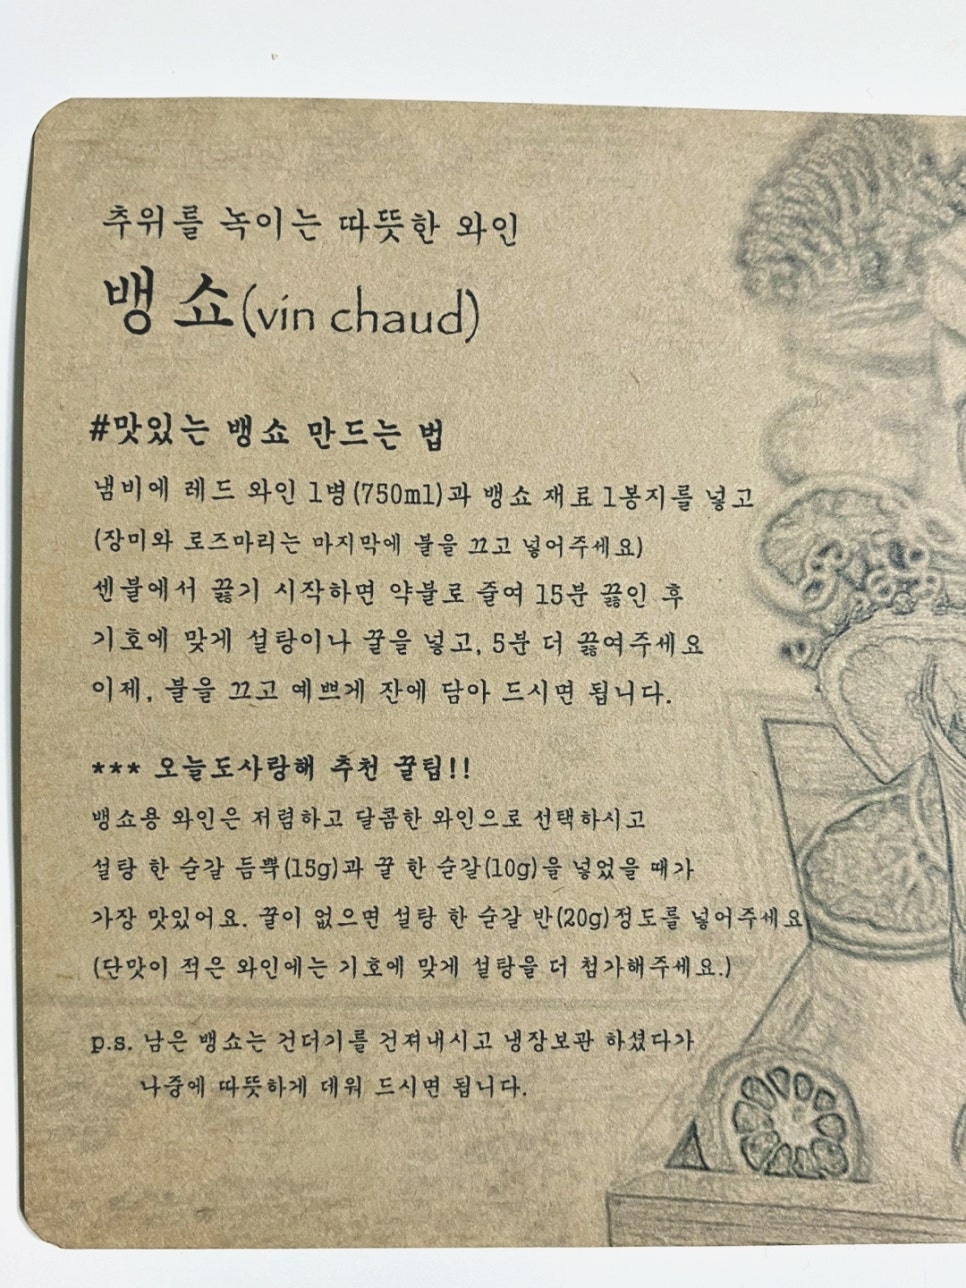 추위를 녹이는 따뜻한 와인
뱅 쇼(vin chaud)
#맛있는 뱅쇼 만드는 법
냄비에 레드 와인 1병(750ml)과 뱅쇼 재료 1봉지를 넣고
(장미와 로즈마리는 마지막에 불을 끄고 넣어주세요)
센불에서 끓기 시작하면 약불로 줄여 15분 끓인 후
기호에 맞게 설탕이나 꿀을 넣고, 5분 더 끓여주세요
이제, 불을 끄고 예쁘게 잔에 담아 드시면 됩니다.
*** 오늘도사랑해 추천 꿀팁!!
뱅쇼용 와인은 저렴하고 달콤한 와인으로 선택하시고
설탕 한 숟갈 듬뿍(15g)과 꿀 한 숟갈(10g)을 넣었을 때가
가장 맛있어요. 꿀이 없으면 설탕 한 숟갈 반(20g)정도를 넣어주세요
(단맛이 적은 와인에는 기호에 맞게 설탕을 더 첨가해주세요.)
p.s. 남은 뱅쇼는 건더기를 건져내시고 냉장보관 하셨다가
나중에 따뜻하게 데워 드시면 됩니다.